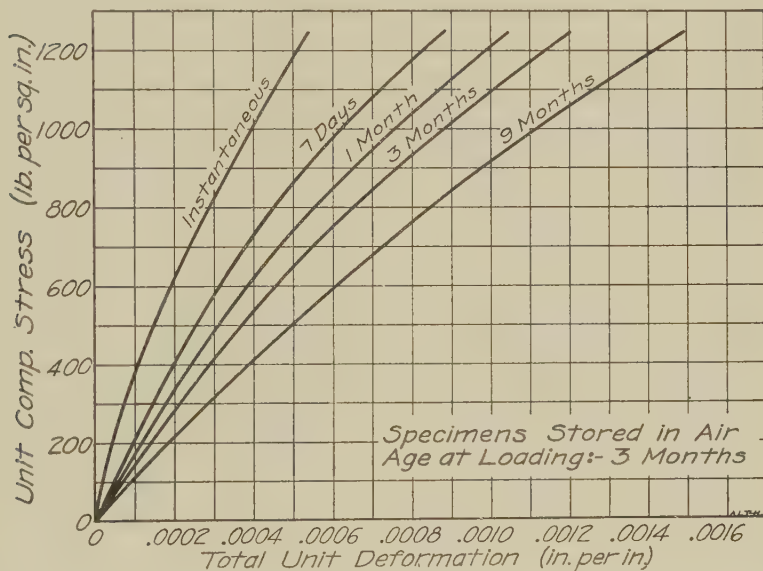 Unit Comp. Stress (lb. per sq. in.)
1200
1000
800
600
400
200
0
Instantaneous
7 Days
1 Month
3 Months
9 Months
Specimens Stored in Air
Age at Loading:- 3 Months
0 .0002 .0004 .0006 .0008 .0010 .0012 .0014 .0016
Total Unit Deformation (in. per in.)